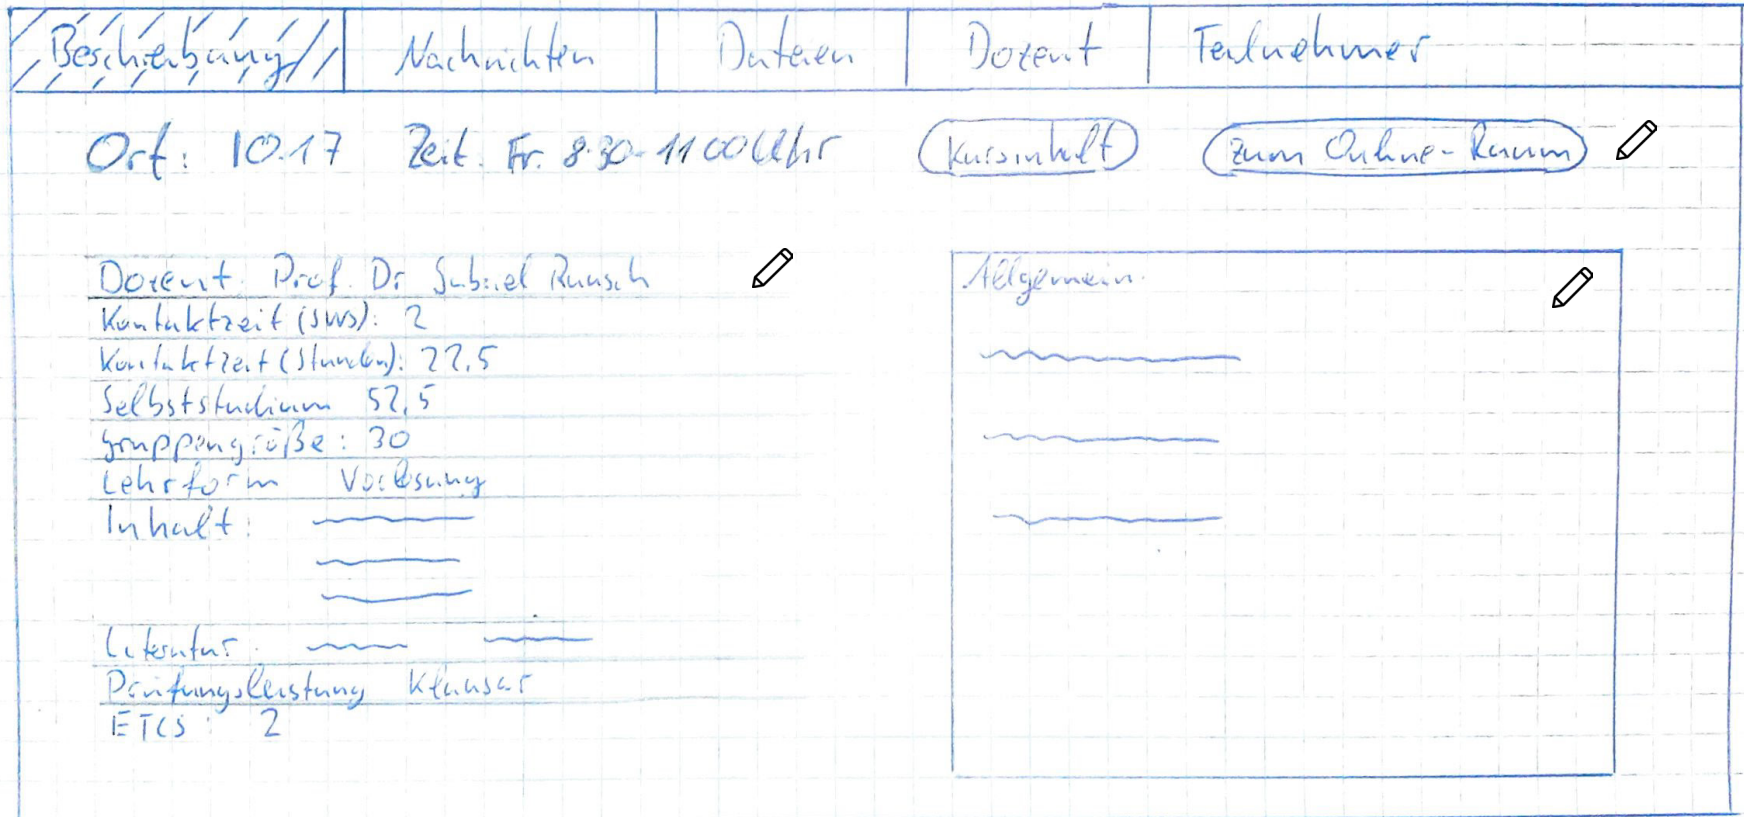 Beschreibung Nachrichten Dateien Dozent Teilnehmer
Ort: 10.17 Zeit: Fr. 8:30-11 00 Uhr Kursinhalt zum Online-Raum
Dozent: Prof. Dr Gabriel Rausch
Kontaktzeit (SWS): 2
Kontaktzeit (Stunden): 22,5
Selbststudium 52,5
Gruppengröße: 30
Lehrform Vorlesung
Inhalt:
Literatur:
Prüfungsleistung Klausur
ETCS: 2
Allgemein: